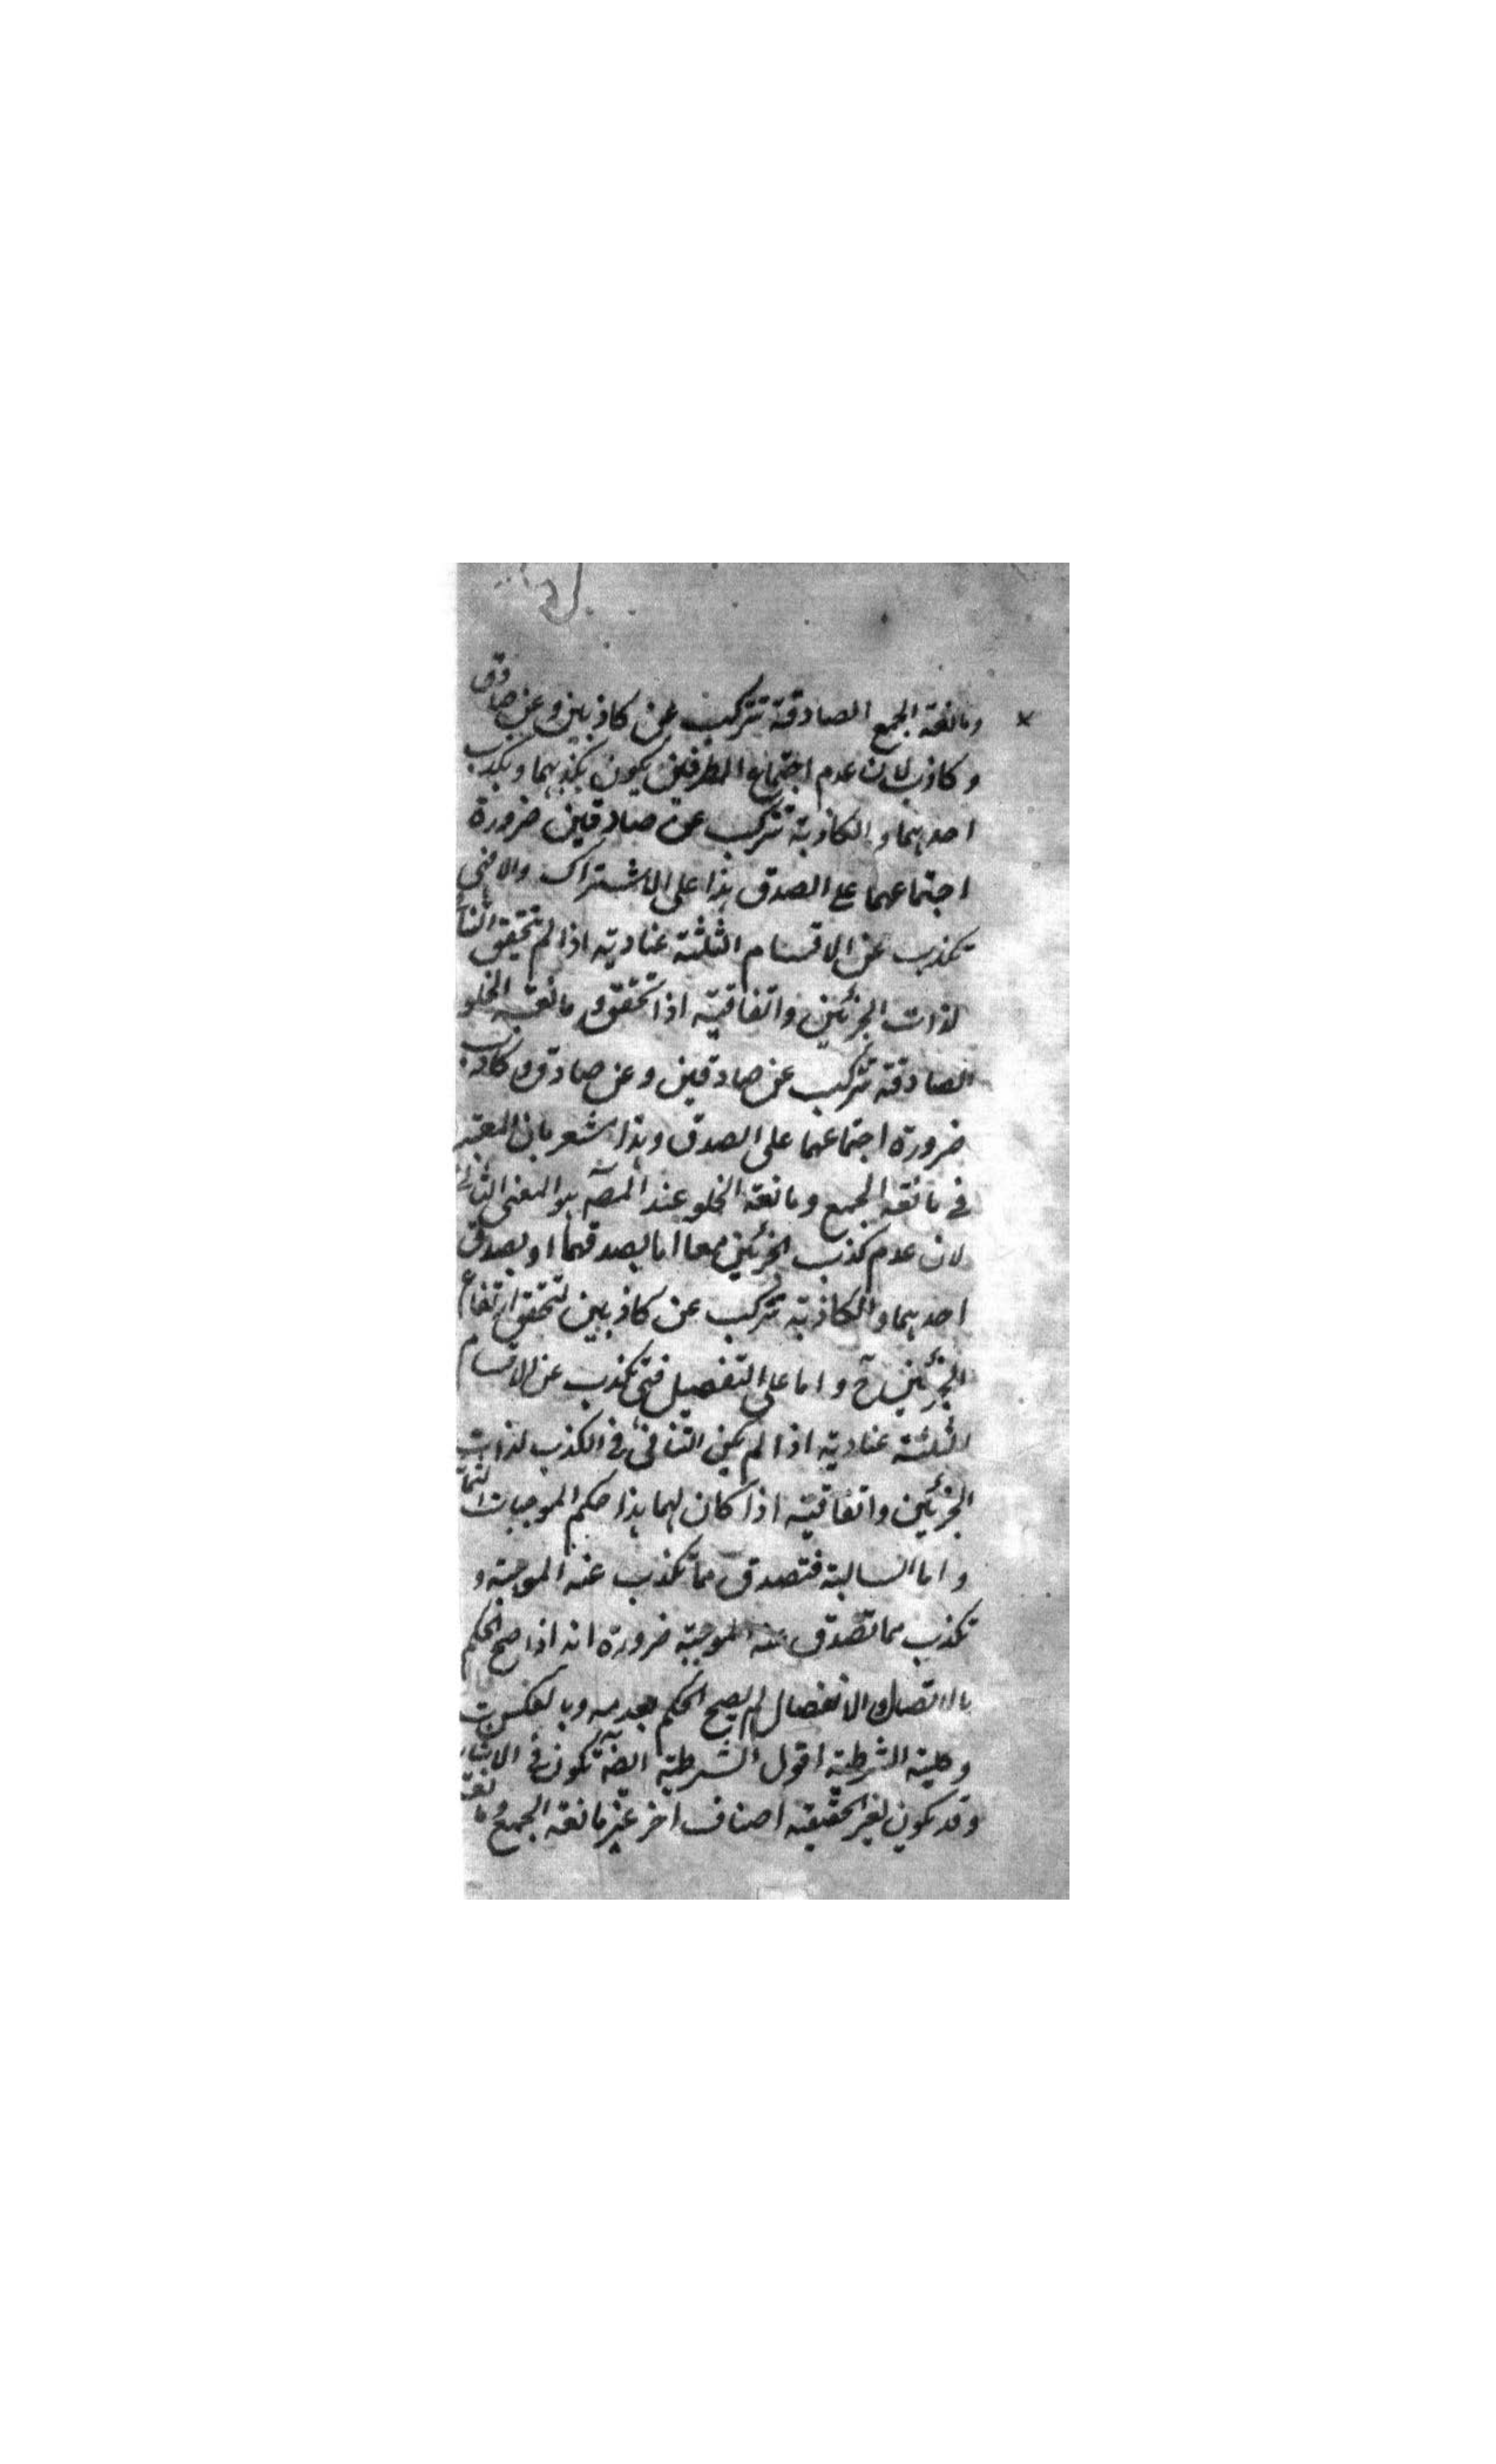 ومانعة الجمع الصادقة تتركب عن كاذبين وعن صادق
وكاذب لان عدم اجتماع الطرفين يكون بكذبهما وبكذب
احدهما والكاذبة تتركب عن صادقين ضرورة
اجتماعهما على الصدق هذا على الاشتراك والا فهى
تكذب عن الاقسام الثلثة عنادية اذا لم تحقق
لذات الجزئين واتفاقية اذا تحقق ومانعة الخلو
الصادقة تتركب عن صادقين وعن صادق وكاذب
ضرورة اجتماعهما على الصدق وهذا يشعر بان المعتبر
فى مانعة الجمع ومانعة الخلو عند المصـ هو المعنى الثانى
لان عدم كذب الجزئين معا اما بصدقهما او بصدق
احدهما والكاذبة تتركب عن كاذبين لتحقق ارتفاع
الجزئين ح واما على التفصيل فتكذب عن الاقسام
الثلثة عنادية اذا لم يكن التنافى فى الكذب لذات
الجزئين واتفاقية اذا كان لهما هذا حكم الموجبات
واما السالبة فتصدق مما تكذب عنه الموجبة و
تكذب مما تصدق عنه الموجبة ضرورة انه اذا صح الحكم
بالاتصال والانفصال لم يصح الحكم بعدمه وبالعكس
وكلية الشرطية اقول الشرطية ايضا تكون فى
وقد يكون لغير الحقيقية اصناف اخر غير مانعة الجمع ومانعة